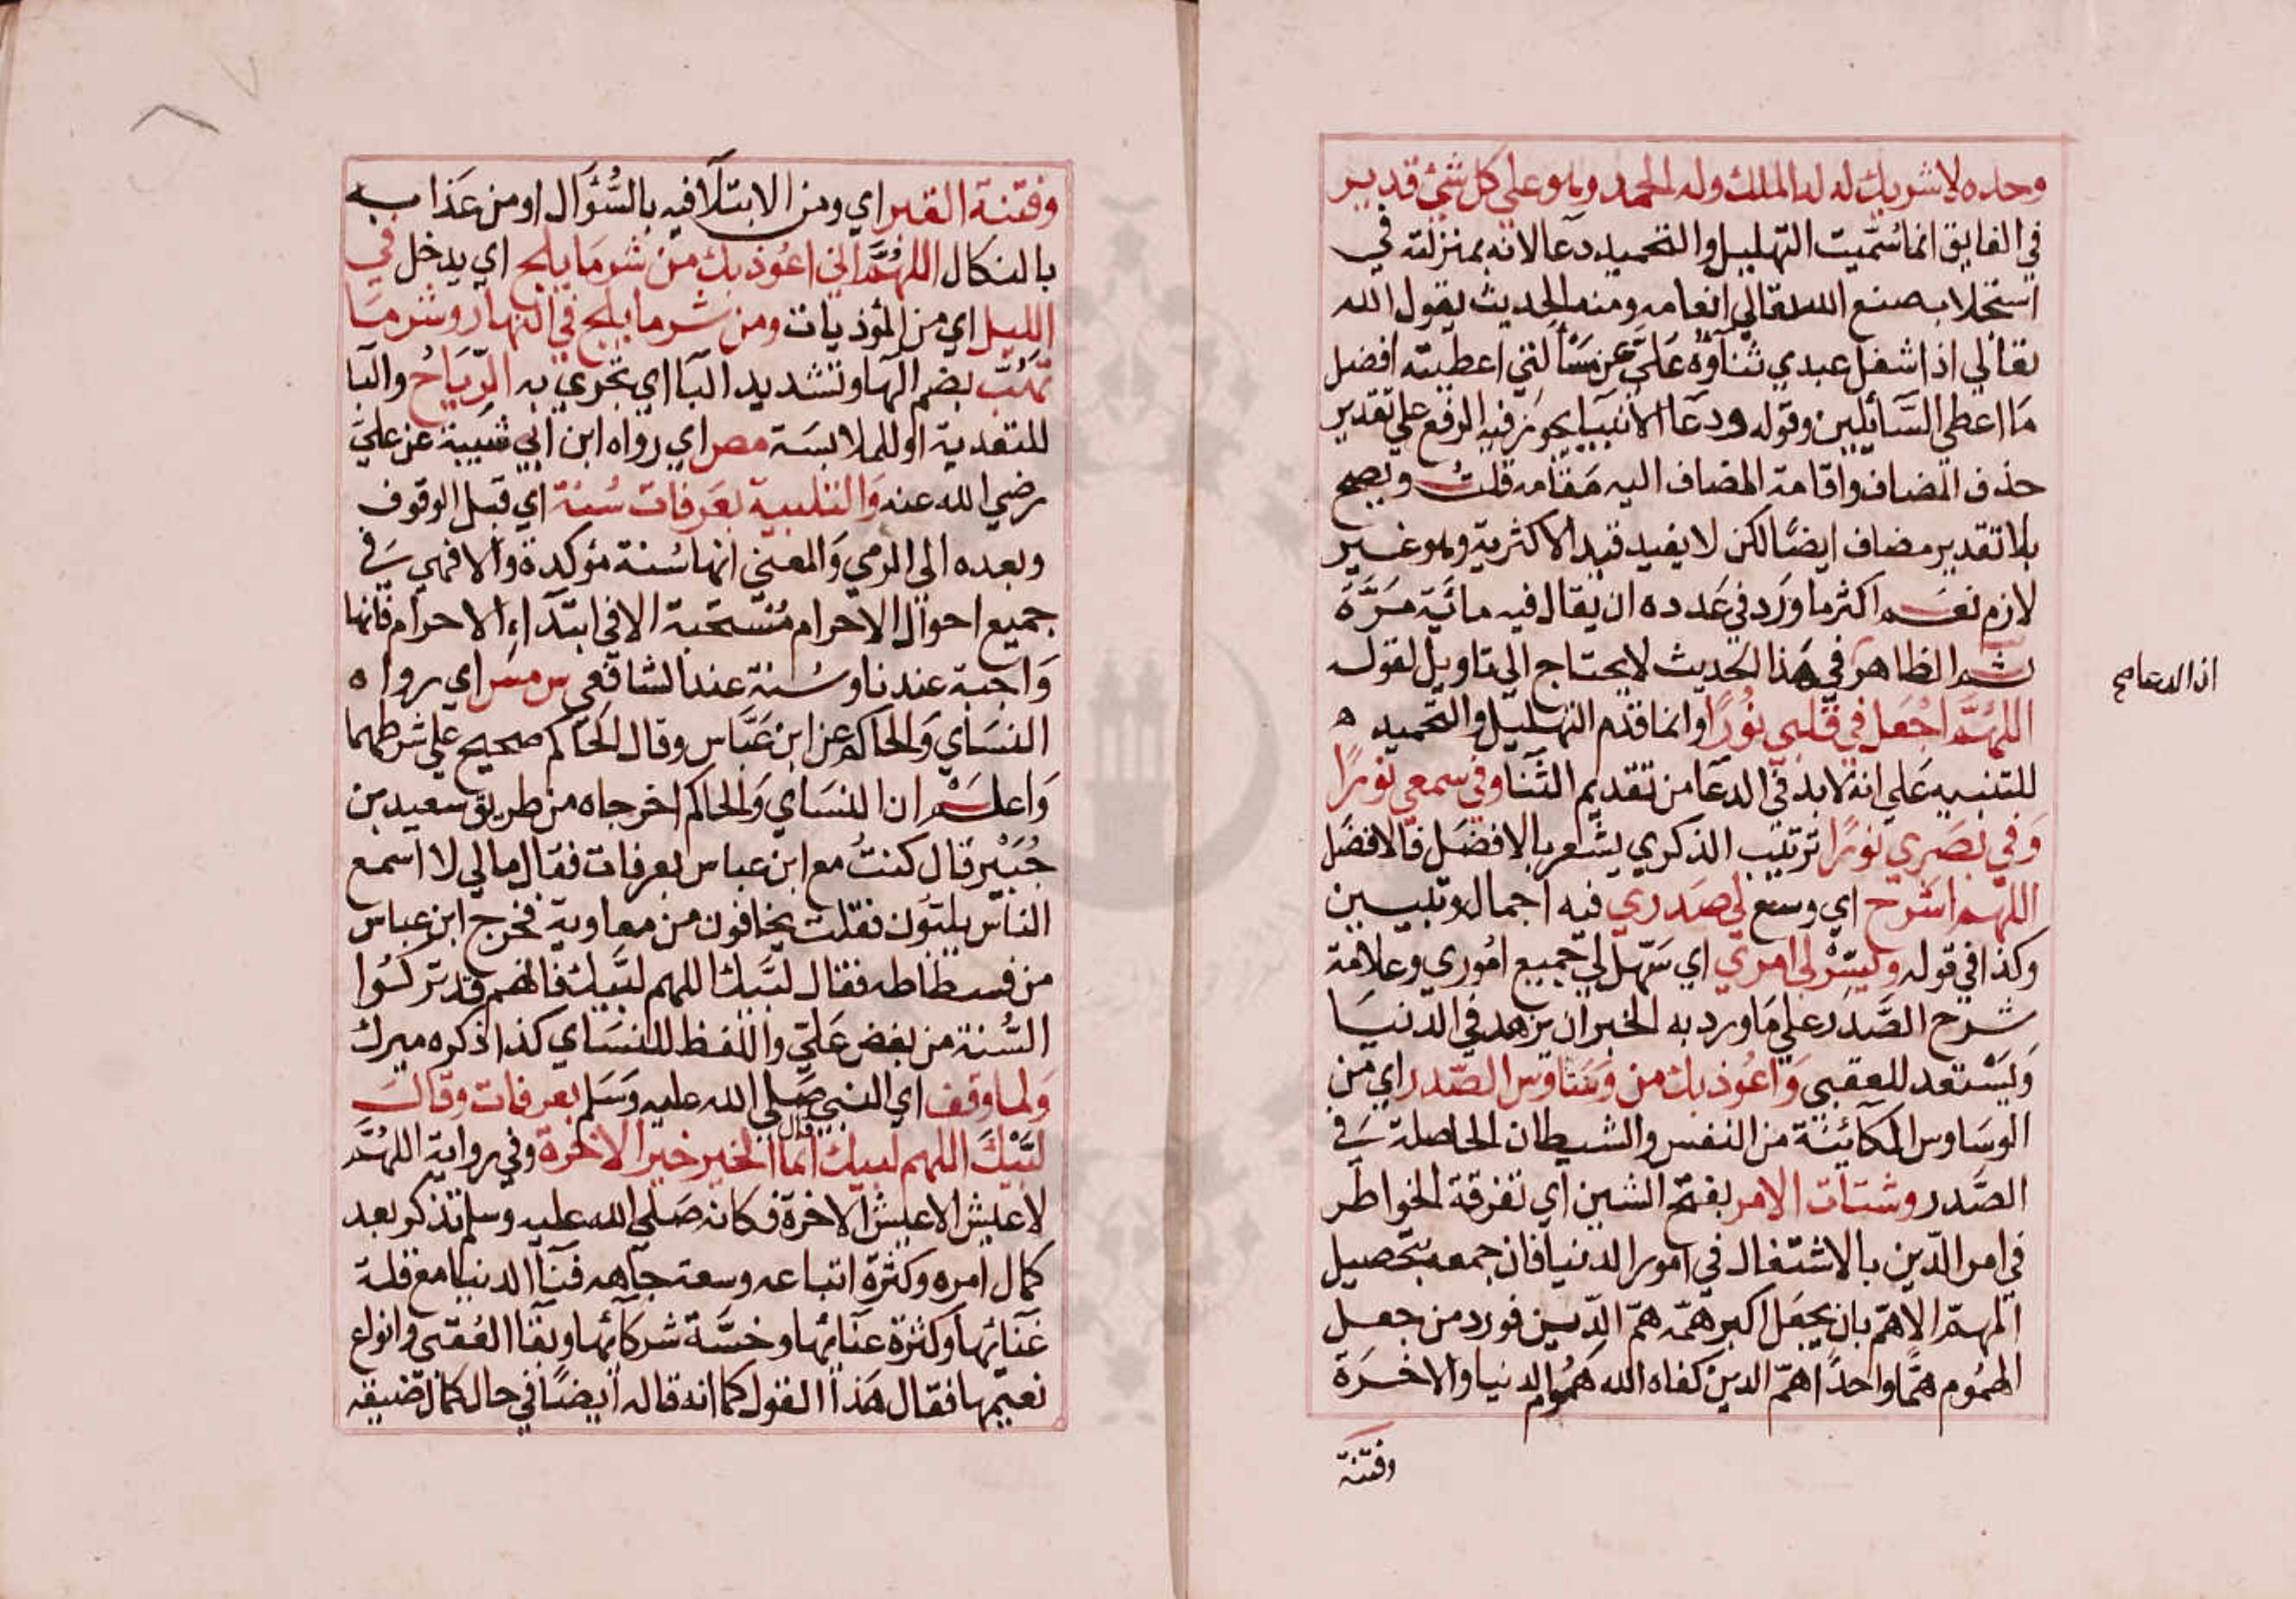 وحده لا شريك له له الملك وله الحمد وهو على كل شئ قدير
في الفايق انما سُميت التهليل والتحميد دعا لانه بمنزلته في
استجلاب صنع الله تعالي انعامه ومنه الحديث يقول الله
تعالي اذا شغل عبدي ثناؤه عَلَيَّ عن مسألتي اعطيته افضل
مَا اعطى السَّائِلين وقوله ودعَا الانبيا يجوز فيه الرفع علي تقدير
حذف المضاف واقامة المضاف اليه مَقامه قلتُ ويصح
بلا تقدير مضاف ايضًا لكن لا يفيد قيد الاكثرية وهو غير
لازم نعم اكثر ما وَرَد في عَدده ان يقال فيه مائية مَرَّةً
ثم الظاهر في هَذا الحديث لا يحتاج الي تاويل لقوله
اذ الدعا صح
اللهُمَّ اجْعَل في قلبي نُورًا وانما قدم التهليل والتحميد ه
للتنبيه عَلي انه لابد في الدعَا من تقديم الثَّنَا وفي سمعي نورًا
وَفي بصَري نورًا ترتيب الذكري يشعر بالافضَل فالافضَل
اللهم اشرَح اي وسع لي صَدري فيه اجمال وتبيين
وكذا في قوله ويَسّرْ لي امري اي سَهّل لي جميع امُوري وعلامة
شرح الصَّدر علي مَا ورد به الخبر ان يزهد في الدنيَا
وَيَسْتعد للعقبي وَاعُوذ بك من وسَاوس الصَّدر اي من
الوسَاوس الكائنة من النفس والشيطان الحاصلة في
الصَّدر وشتات الامر بفتح الشين اي تفرقة الخواطر
في امر الدّين بالاشتغال في امور الدنيا فان جمعه بتحصيل
المهمّ الاهمّ بان يجعَل اكبر همّه همّ الدّين فورد من جعل
الهمُوم همًّا واحدًا همّ الدين كفاه الله همُوم الدنيا والاخرَة
وفتنة
وفتنة القبر اي ومن الابتلآ فيه بالسُّؤَال او من عَذابه
بالنكال اللهُمَّ اني اعُوذ بك من شر مَا يلج اي يدخل في
الليل اي من المؤذيات ومن شر ما يلج في النهار وشر مَا
تهُبّ بضم الهَا وتشديد البَا اي تجري به الرّيَاحُ والبَا
للتعدية او للملابسَة مص اي رواه ابن ابي شيبة عن عليّ
رضي الله عنه وَالتلبية بعَرفات سُنة اي قبل الوقوف
وبعده الي الرمي وَالمعني انها سُنة مؤكدة والا فهي في
جميع احوال الاحرام مُستحَبة الا في ابتدآء الاحرام فانها
وَاجبَة عندنا وسُنة عند الشافعي س مس اي رواه
النسَاي وَالحاكم عن ابن عَبَّاس وقال الحَاكم صحيح علي شرطهما
وَاعلم ان النسَاي وَالحاكم اخرجاه من طريق سعيد بن
جُبَيْر قال كنتُ مع ابن عباس بعرفات فقال مالي لا اسمع
الناس يلبّون فقلت يخافون من معاوية فخرج ابن عباس
من فسطاطه فقال لبَّيك اللهم لبَّيك فانهم قد تركُوا
السُّنة من بغض عَليّ واللفظ للنسَاي كذا ذكره ميرك
وَلما وقف اي النبي صَلي الله عليه وَسَلم بعرفات وقال
لبَّيْكَ اللهم لبيك قال انما الخير خير الاخرة وفي رواية اللهُمَّ
لا عيش الا عيش الاخرة فكانه صَلي الله عليه وسلم تذكر بعد
كمال امره وكثرة اتباعه وسعة جَاهه فنَآ الدنيا مع قلة
غَنَائها وكثرة عنَائها وخسَّة شركَائها وبقَا العُقبي وانواع
نعيمها فقال هَذا القول كما انه قاله ايضًا في حال كمال ضيقه